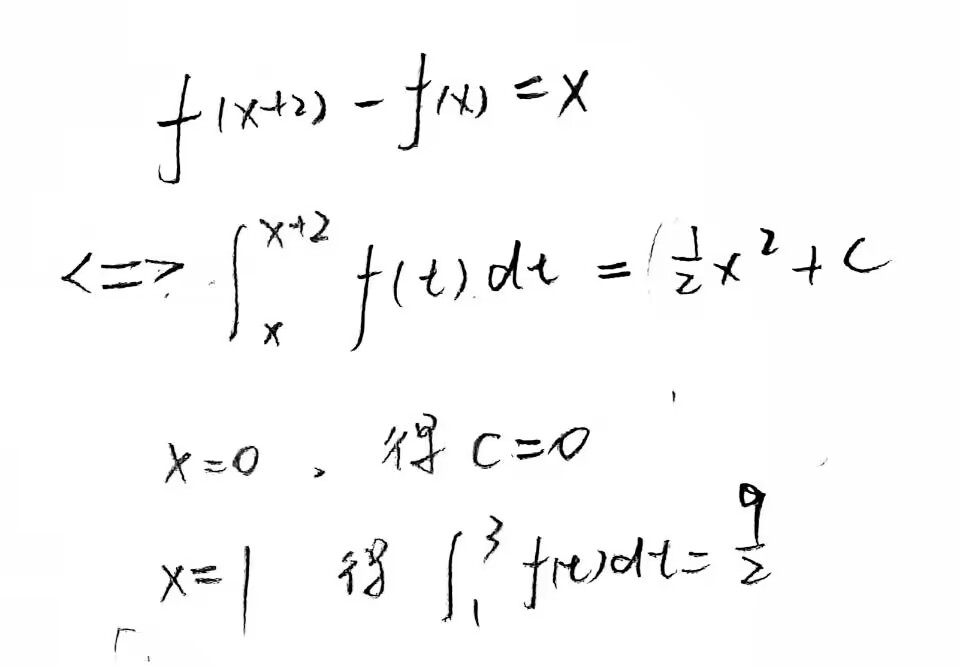 f(x+2) - f(x) = x
<=> ∫_x^{x+2} f(t) dt = \frac{1}{2}x^2 + C
x=0 、 得 C=0
x=1 得 ∫_1^3 f(t)dt = \frac{9}{2}